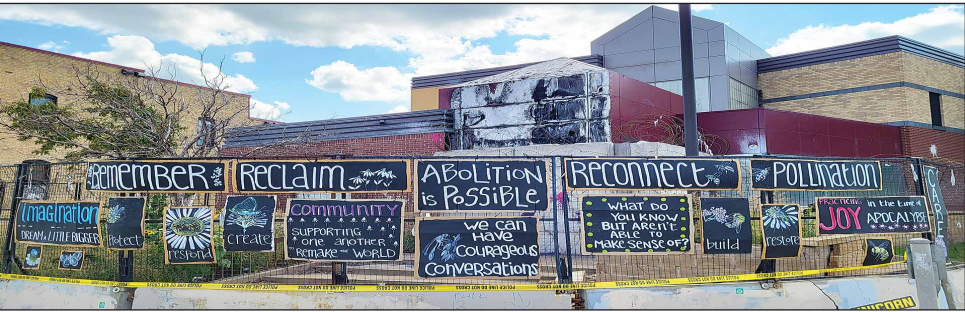 REMEMBER
RECLAIM
ABOLITION
is POSSIBLE
RECONNECT
POLLINATION
imagination
DREAM A LITTLE BIGGER
Protect
respond
create
COMMUNITY
SUPPORTING
one another
REMAKE the WORLD
we can
Have
courageous
Conversations
WHAT DO
YOU KNOW
BUT AREN'T
ABLE TO
MAKE SENSE OF?
build
restore
PRACTICING
JOY
in the time of
APOCALYPSE
POLICE LINE DO NOT CROSS
UNICORN